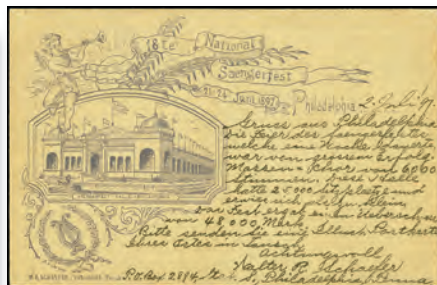 18te National
Saengerfest
21-24 Juni 1897
Philadelphia 2. Juli 97.
Gruss aus Philadelphia
Die Feier des Saengerfestes
welche eine Woche dauerte
war von grossem Erfolg
Massen-Chor von 6000
Stimmen. Diese Halle
hatte 25000 Sitzplaetze und
erwies sich als zu klein
Das Fest ergab einen Ueberschuss
von 48000 Mark
Bitte senden Sie eine Illustr. Postkarte
Ihres Ortes in
Achtungsvoll
Walter P. Schaefer
P.O. Box 2894, St. S., Philadelphia, Penna